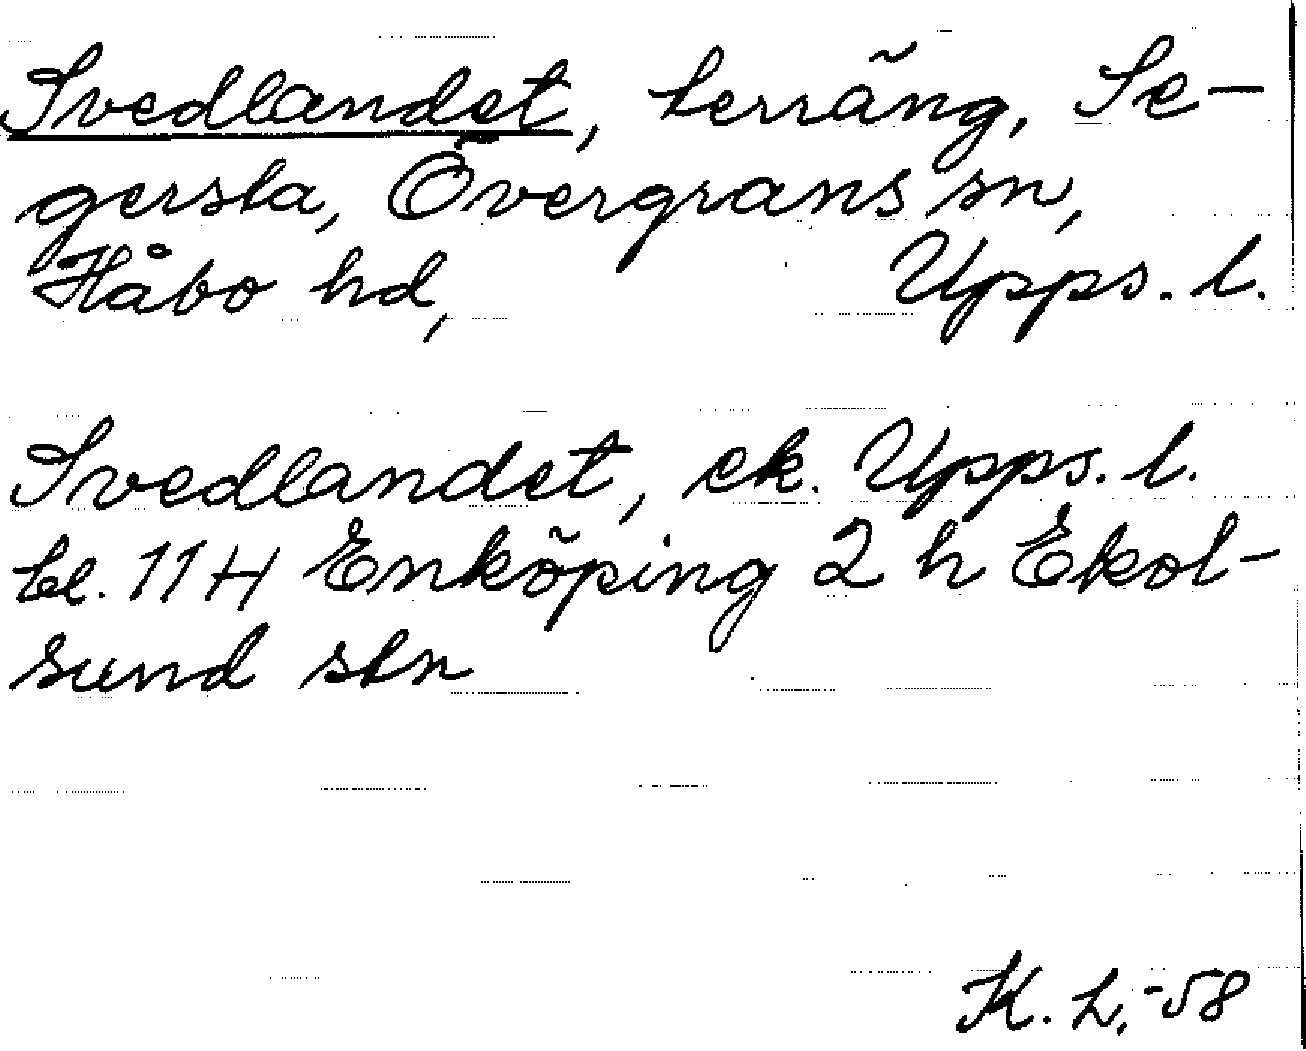 Svedlandet, terräng, Se-
gersta, Övergrans sn,
Håbo hd, Upps. l.
Svedlandet, ek. Upps. l.
bl. 11 H Enköping 2 h Ekol-
sund stn
K. L. -58